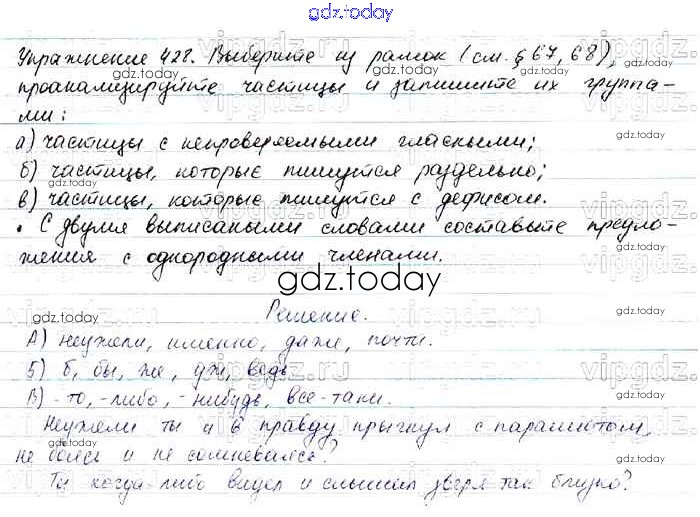 gdz.today
Упражнение 428. Выберите из рамок (см. § 67, 68),
проанализируйте частицы и запишите их группа-
ми:
а) частицы с непроверяемыми гласными;
б) частицы, которые пишутся раздельно;
в) частицы, которые пишутся с дефисом.
• С двумя выписаными словами составьте предло-
жения с однородными членами.
gdz.today
Решение.
А) неужели, именно, даже, почти.
Б) б, бы, же, уж, ведь
В) -то, -либо, -нибудь, все-таки.
Неужели ты и в правду прыгнул с парашютом,
не боялся и не сомневался?
Ты когда-либо видел и слышал зверя так близко?